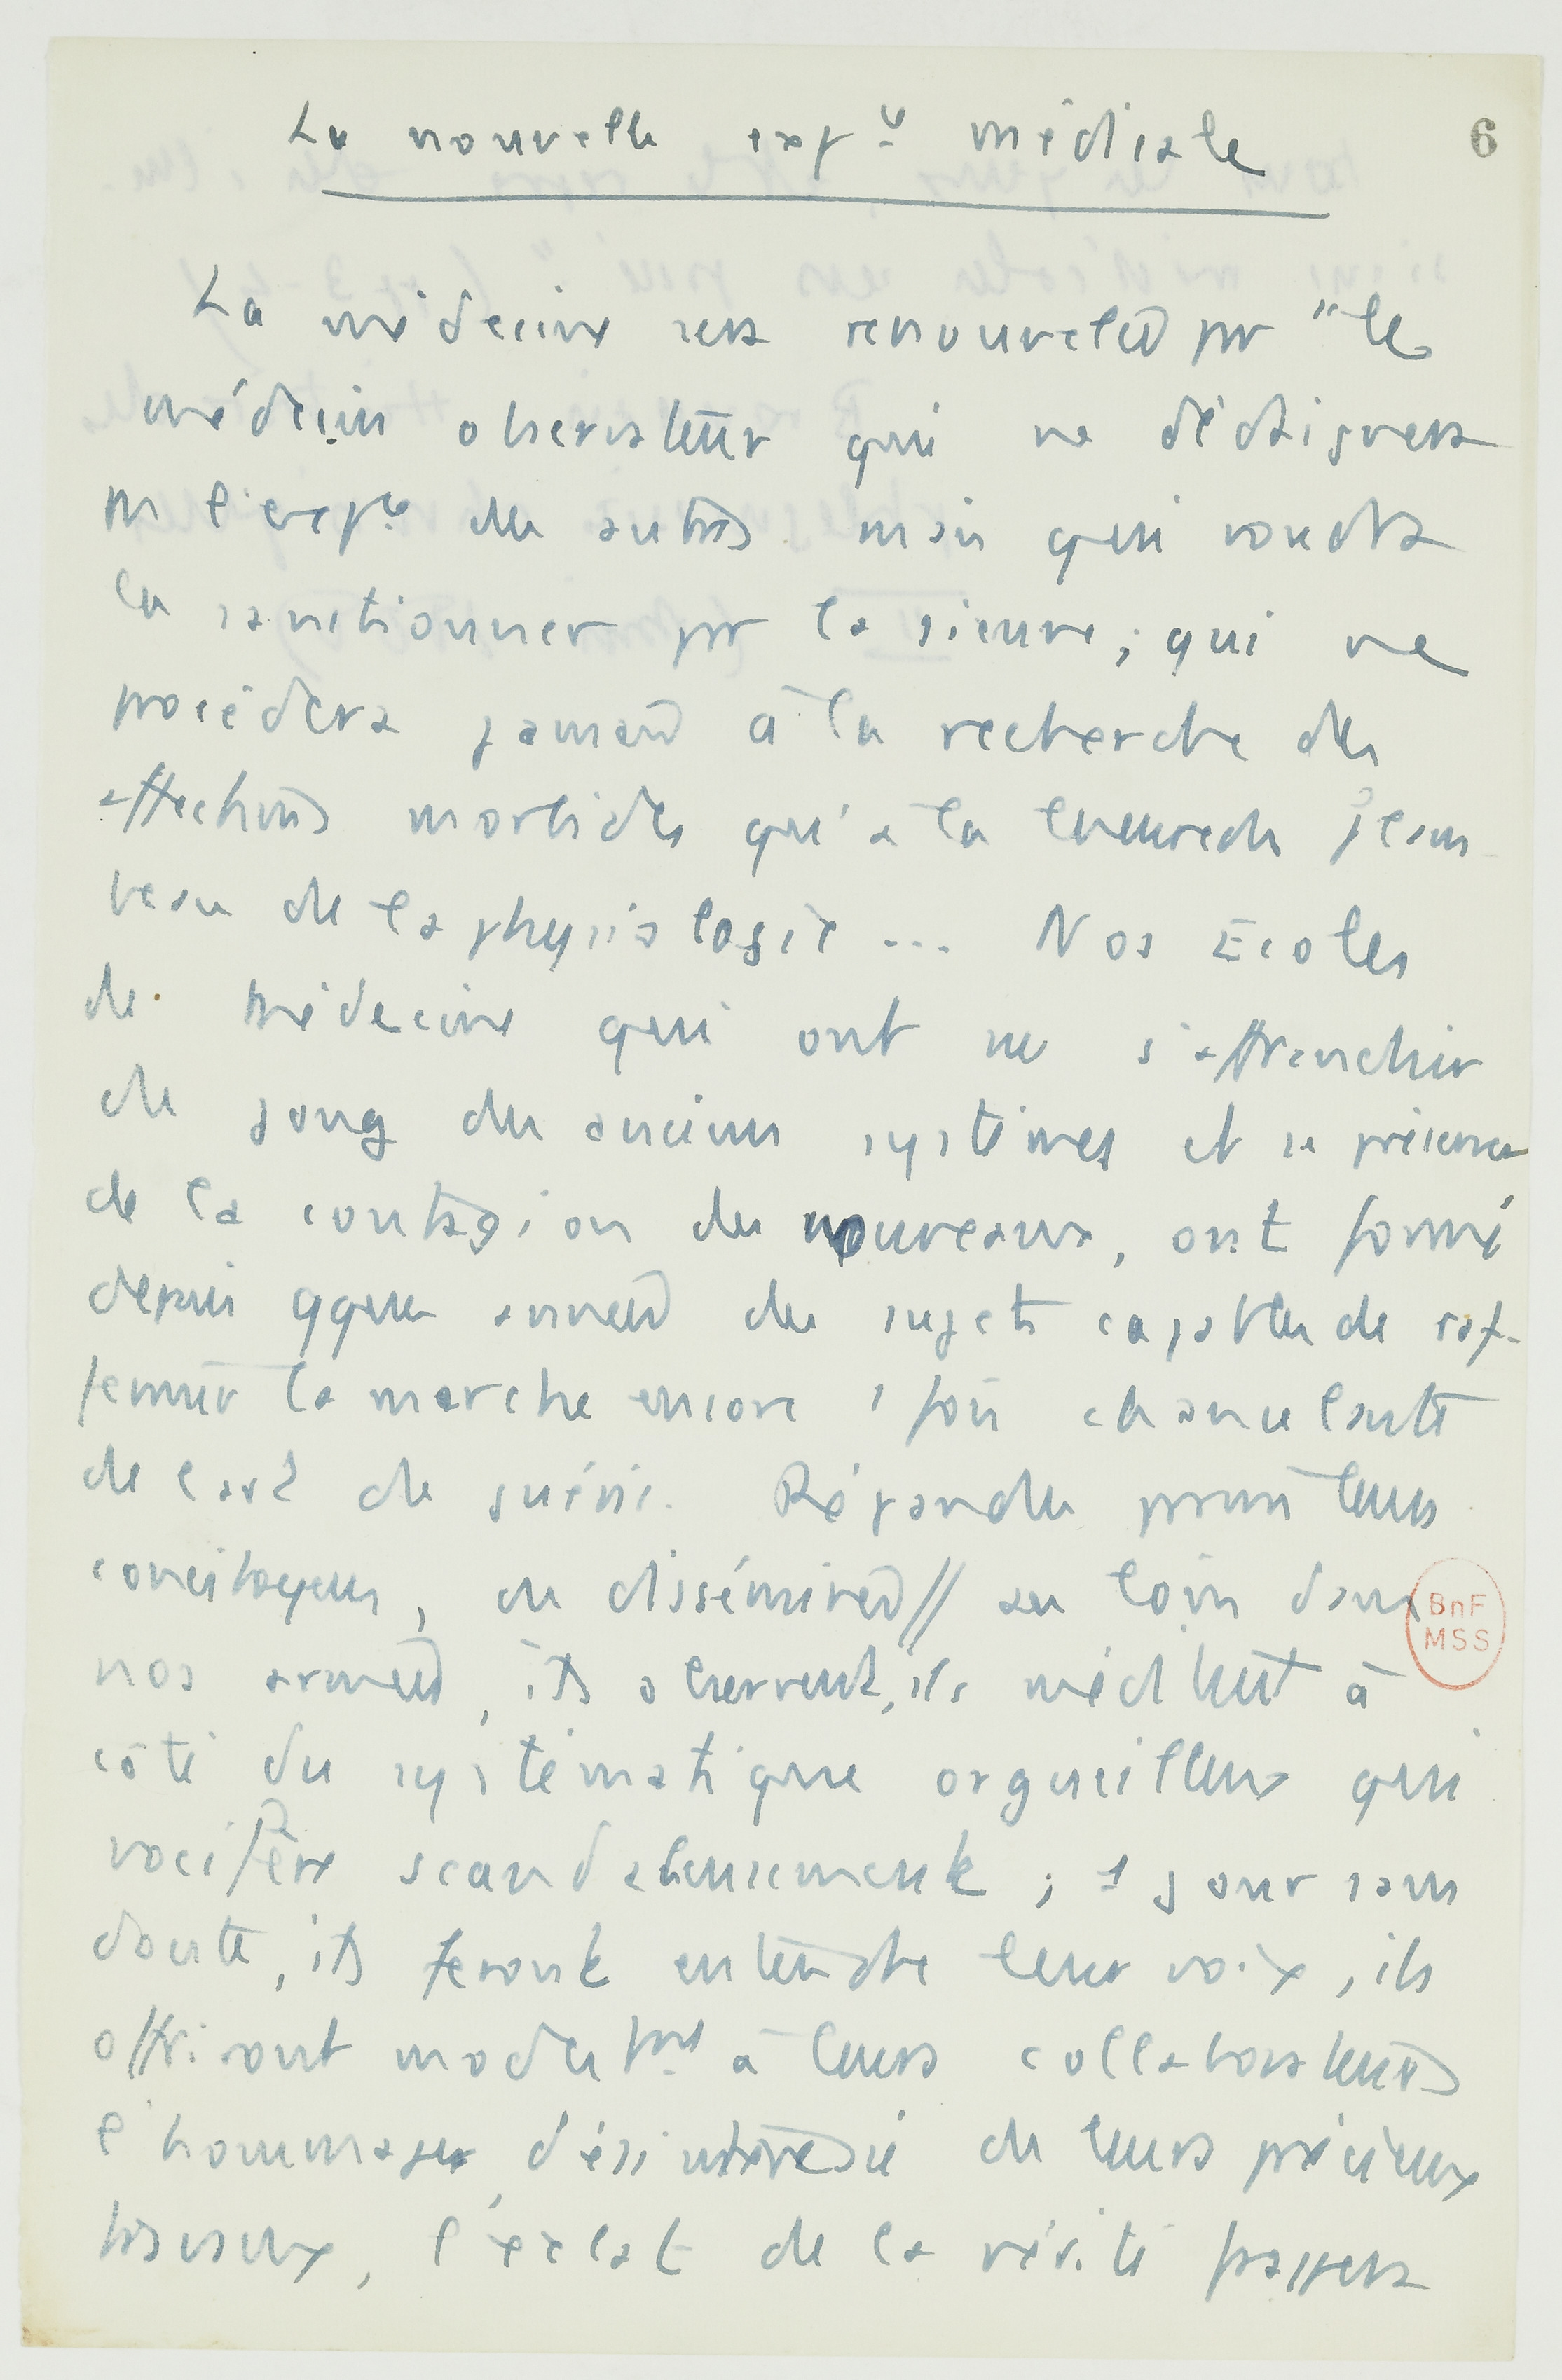 La nouvelle expce médicale
6
La médecine sera renouvelée pr "le
médecin observateur qui ne dédaignera
ni l'expce des autres mais qui voudra
la sanctionner pr la sienne ; qui ne
procédera jamais à la recherche des
affections morbides qu'à la lueur du flam-
beau de la physiologie ... Nos Ecoles
de médecine qui ont su s'affranchir
du joug des anciens systèmes et se préserver
de la contagion des nouveaux, ont formé
depuis qques années des sujets capables de raf-
fermir la marche encore 1 fois chancelante
de l'art de guérir. Répandus parmi leurs
concitoyens, ou disséminés // au loin dans
nos armées, ils observent, ils méditent à
côté du systématique orgueilleux qui
vocifère scandaleusement ; 1 jour sans
doute, ils feront entendre leur voix, ils
offriront modestmt à leurs collaborateurs
l'hommage désintéressé de leurs précieux
travaux, l'éclat de la vérité passera
BnF
MSS